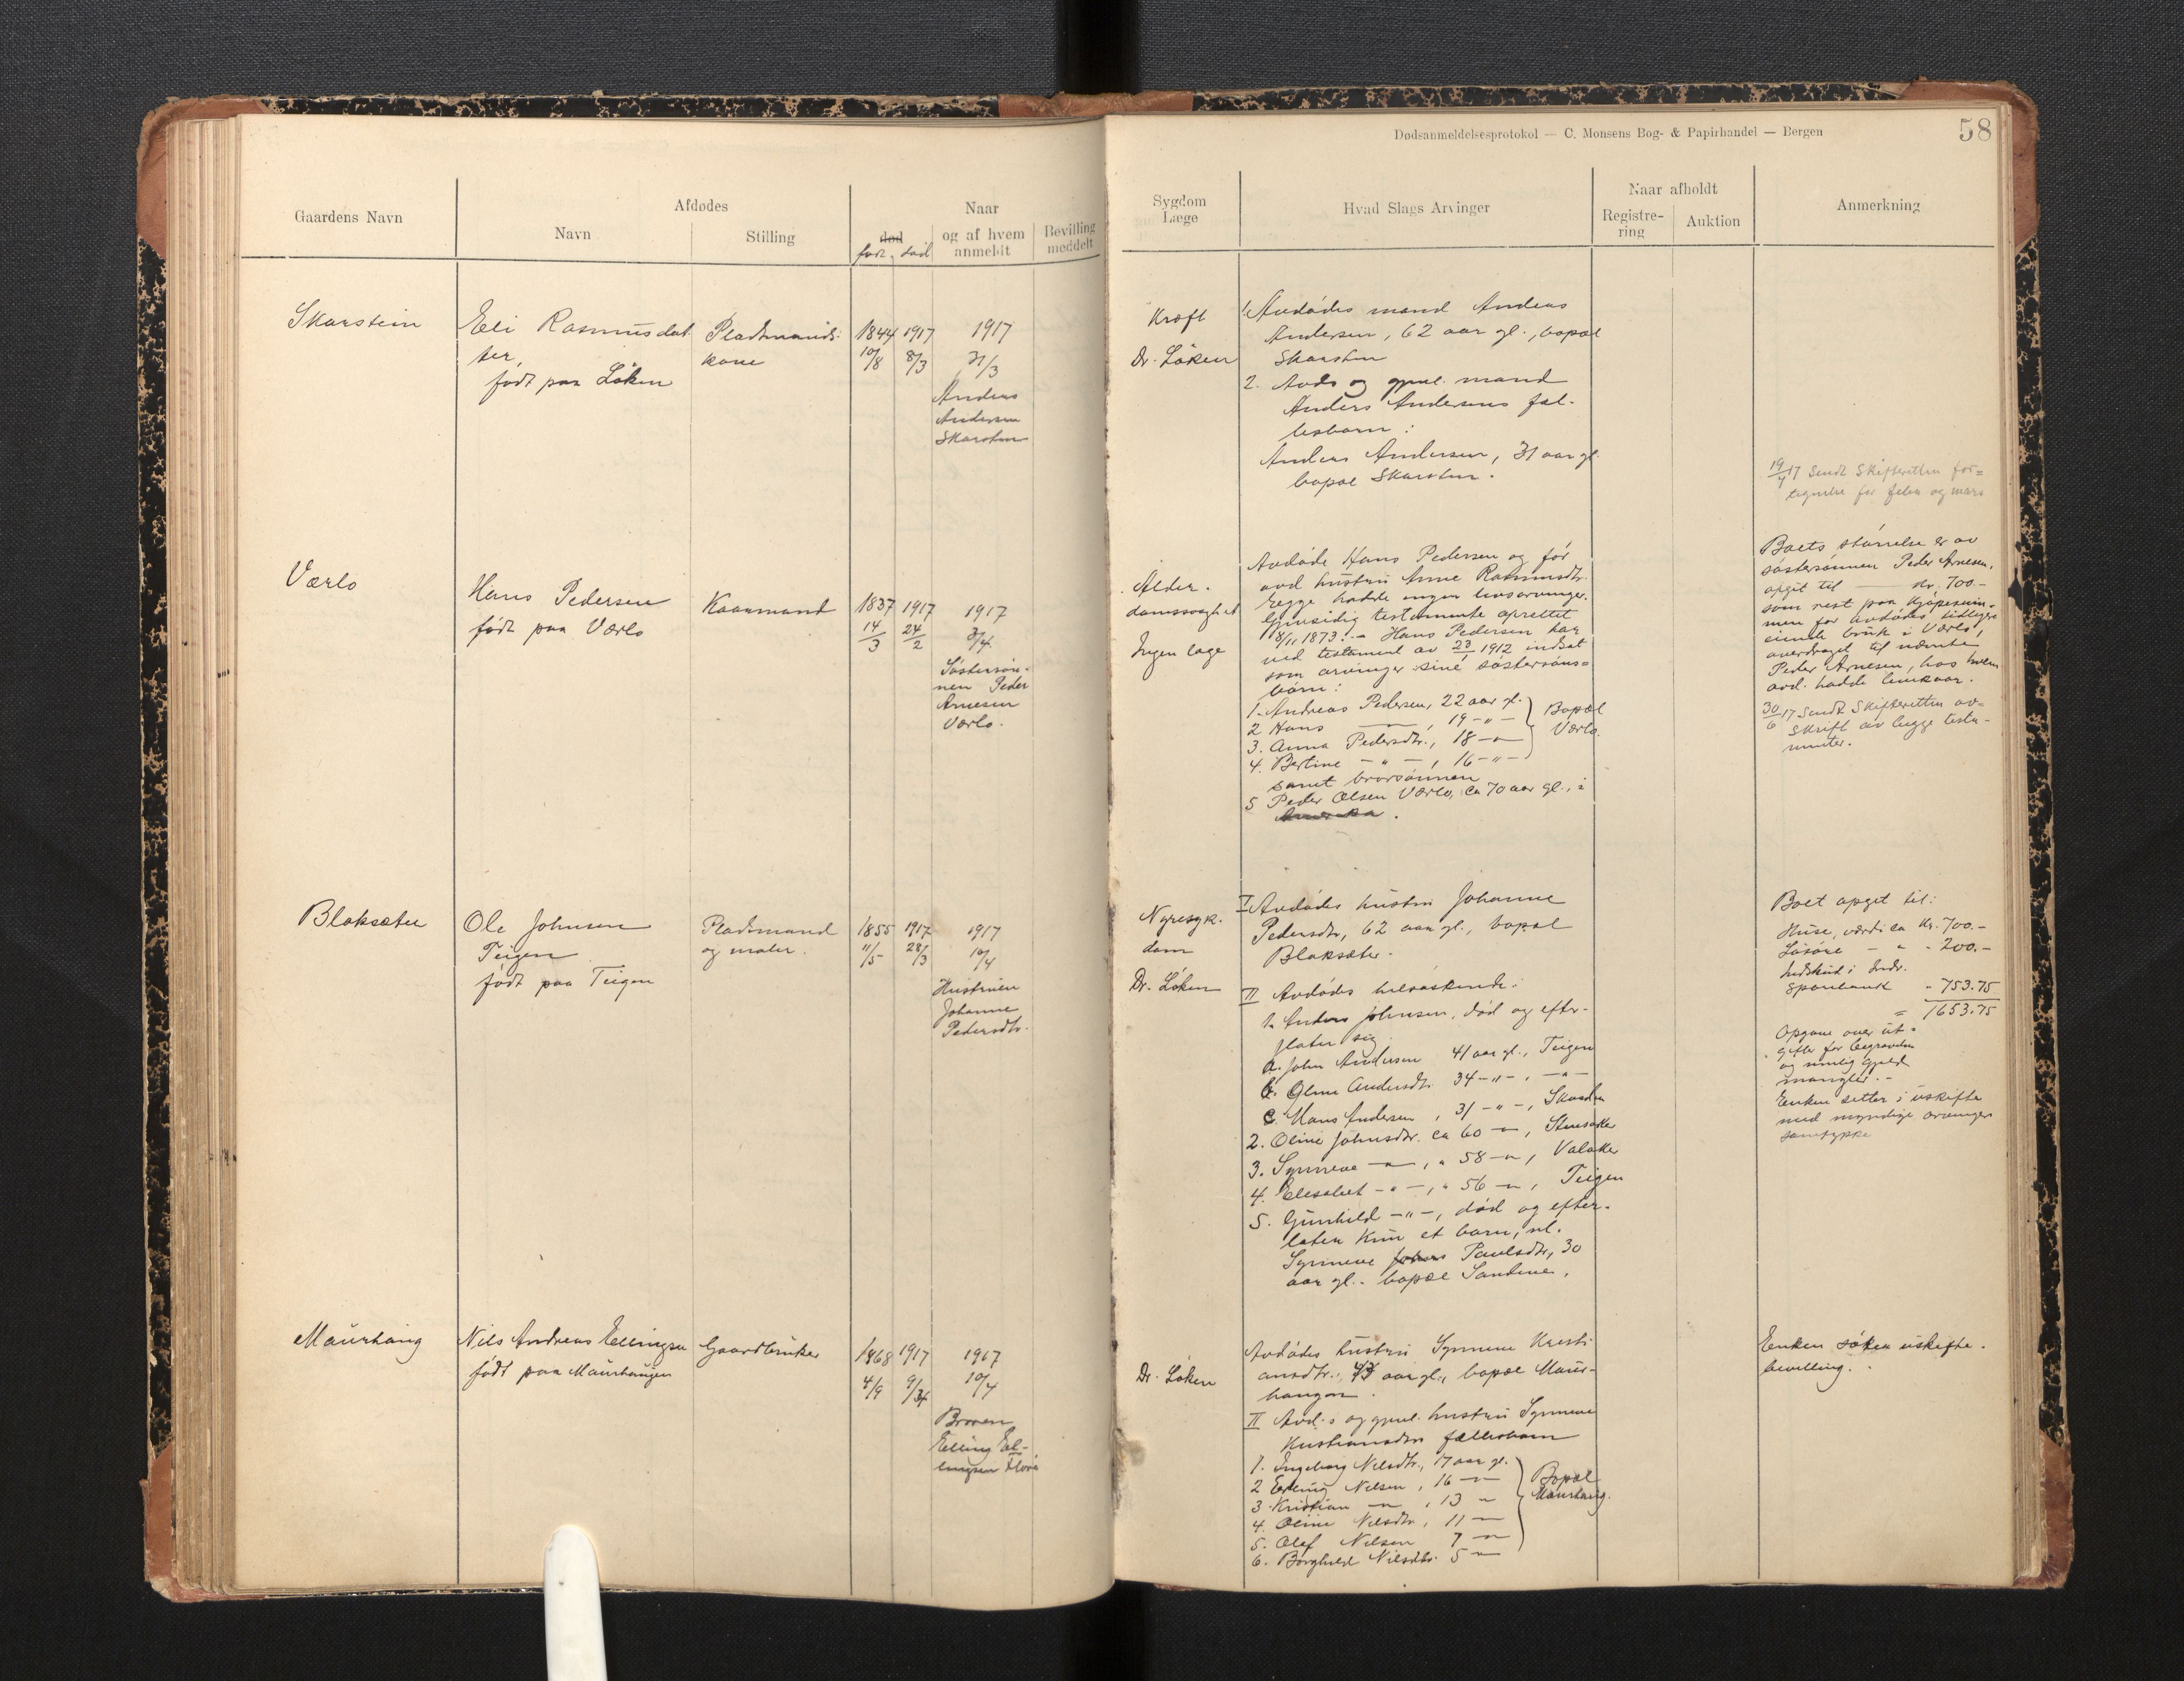 Dødsanmeldelsesprotokol — C. Monsens Bog- & Papirhandel — Bergen
58
Gaardens Navn
Afdødes
Navn
Stilling
død
født død
Naar
og af hvem
anmeldt
Bevilling
meddelt
Sygdom
Læge
Hvad Slags Arvinger
Naar afholdt
Registre-
ring
Auktion
Anmerkning
Skarstein
Eli Rasmusdat
ter,
født paa Löken
Pladsmands-
kone
1844
10/8
1917
8/3
1917
31/3
Anders
Andersen
Skarsten
Kræft
Dr. Löken
1. Avdødes mand Anders
Andersen, 62 aar gl., bopæl
Skarsten
2. Avds og gjenl. mand
Anders Andersens fæl-
lesbarn:
Anders Andersen, 31 aar gl.
bopæl Skarsten.
19/4 17 Sendt Skifteretten for=
tegnelse for febr og mars
Værlo
Hans Pedersen
født paa Værlo
Kaarmand
1837
14/3
1917
24/2
1917
3/4
Söstersön-
nen Peder
Arnesen
Værlo.
Alder-
domssvaghet
Ingen læge
Avdøde Hans Pedersen og før
avd hustru Anne Rasmusdtr.
begge hadde ingen livsarvinger.
Gjensidig testamente oprettet
8/11 1873. - Hans Pedersen har
ved testament av 23/ 1912 indsat
som arvinger sine söstersöns=
börn:
1. Andreas Pedersen, 22 aar gl.
2 Hans — , 19 -"-
3. Anna Pedersdtr., 18 -"-
4. Bertine - " - , 16 -"-
Bopæl
Værlo.
samt brorsönnen
5 Peder Olsen Værlo, ca 70 aar gl., i
Amerika.
Boets størrelse er av
söstersönnen Peder Arnesen,
opgit til — kr. 700.-
som rest paa kjöpesum-
men for avdødes tidligere
eiende bruk i Værlo,
overdraget til nævnte
Peder Arnesen, hos hvem
avd. hadde livskaar.
30/6 17 Sendt Skifteretten av=
skrift av begge testa-
menter.
Blaksæter
Ole Johnsen
Teigen
født paa Teigen
Pladsmand
og maler.
1855
11/5
1917
28/3
1917
10/4
Hustruen
Johanne
Pedersdtr.
Nyresyk-
dom
Dr. Löken
I Avdødes hustru Johanne
Pedersdtr, 62 aar gl., bopæl
Blaksæter.
II Avdødes helsöskende:
1. Anders Johnsen, død og efter-
later sig
a. John Andersen 41 aar gl., Teigen
b. Oline Andersdtr. 34 -"-, -"-
c. Hans Andersen , 31 -"-,
2. Oline Johnsdtr. ca 60 -"-,
3. Synneve -"-, " 58 -"-, Valaker
4. Elisabet -"-, " 56 -"-, Teigen
5. Gunhild -"-, død og efter-
later kun et barn, nl.
Synneve Johns Paulsdtr, 30
aar gl. - bopæl Sandene.
Boet opget til:
Huse, værdi ca Kr. 700.-
Lösöre - " - 200.-
Indskud i Indr.
Sparebank " 753.75
= 1653.75
Opgave over ut=
gifter for begravelse
og mulig gjeld
mangler. -
Enken sitter i uskifte
med myndige arvinger
samtykke
Maurhaug
Nils Andreas Ellingsen
født paa Maurhaugen
Gaardbruker
1868
4/9
1917
9/3
1917
10/4
Broren
Elling El-
lingsen
Dr. Löken
Avdødes hustru Synneve Kristi
ansdtr., 43 aar gl., bopæl Maur-
haugen.
II Avd.s og gjenl. hustru Synneve
Kristiansdtrs fællesbarn
1. Ingeborg Nilsdtr., 17 aar gl.
2 Elling Nilsen, 16 -"-
3 Kristian -"- , 13 "
4. Oline Nilsdtr, 11 -"-
5. Olaf Nilsen 7 -"-
6. Borghild Nilsdtr. 5 -"-
Bopæl
Maurhaug.
Enken söker uskifte-
bevilling.